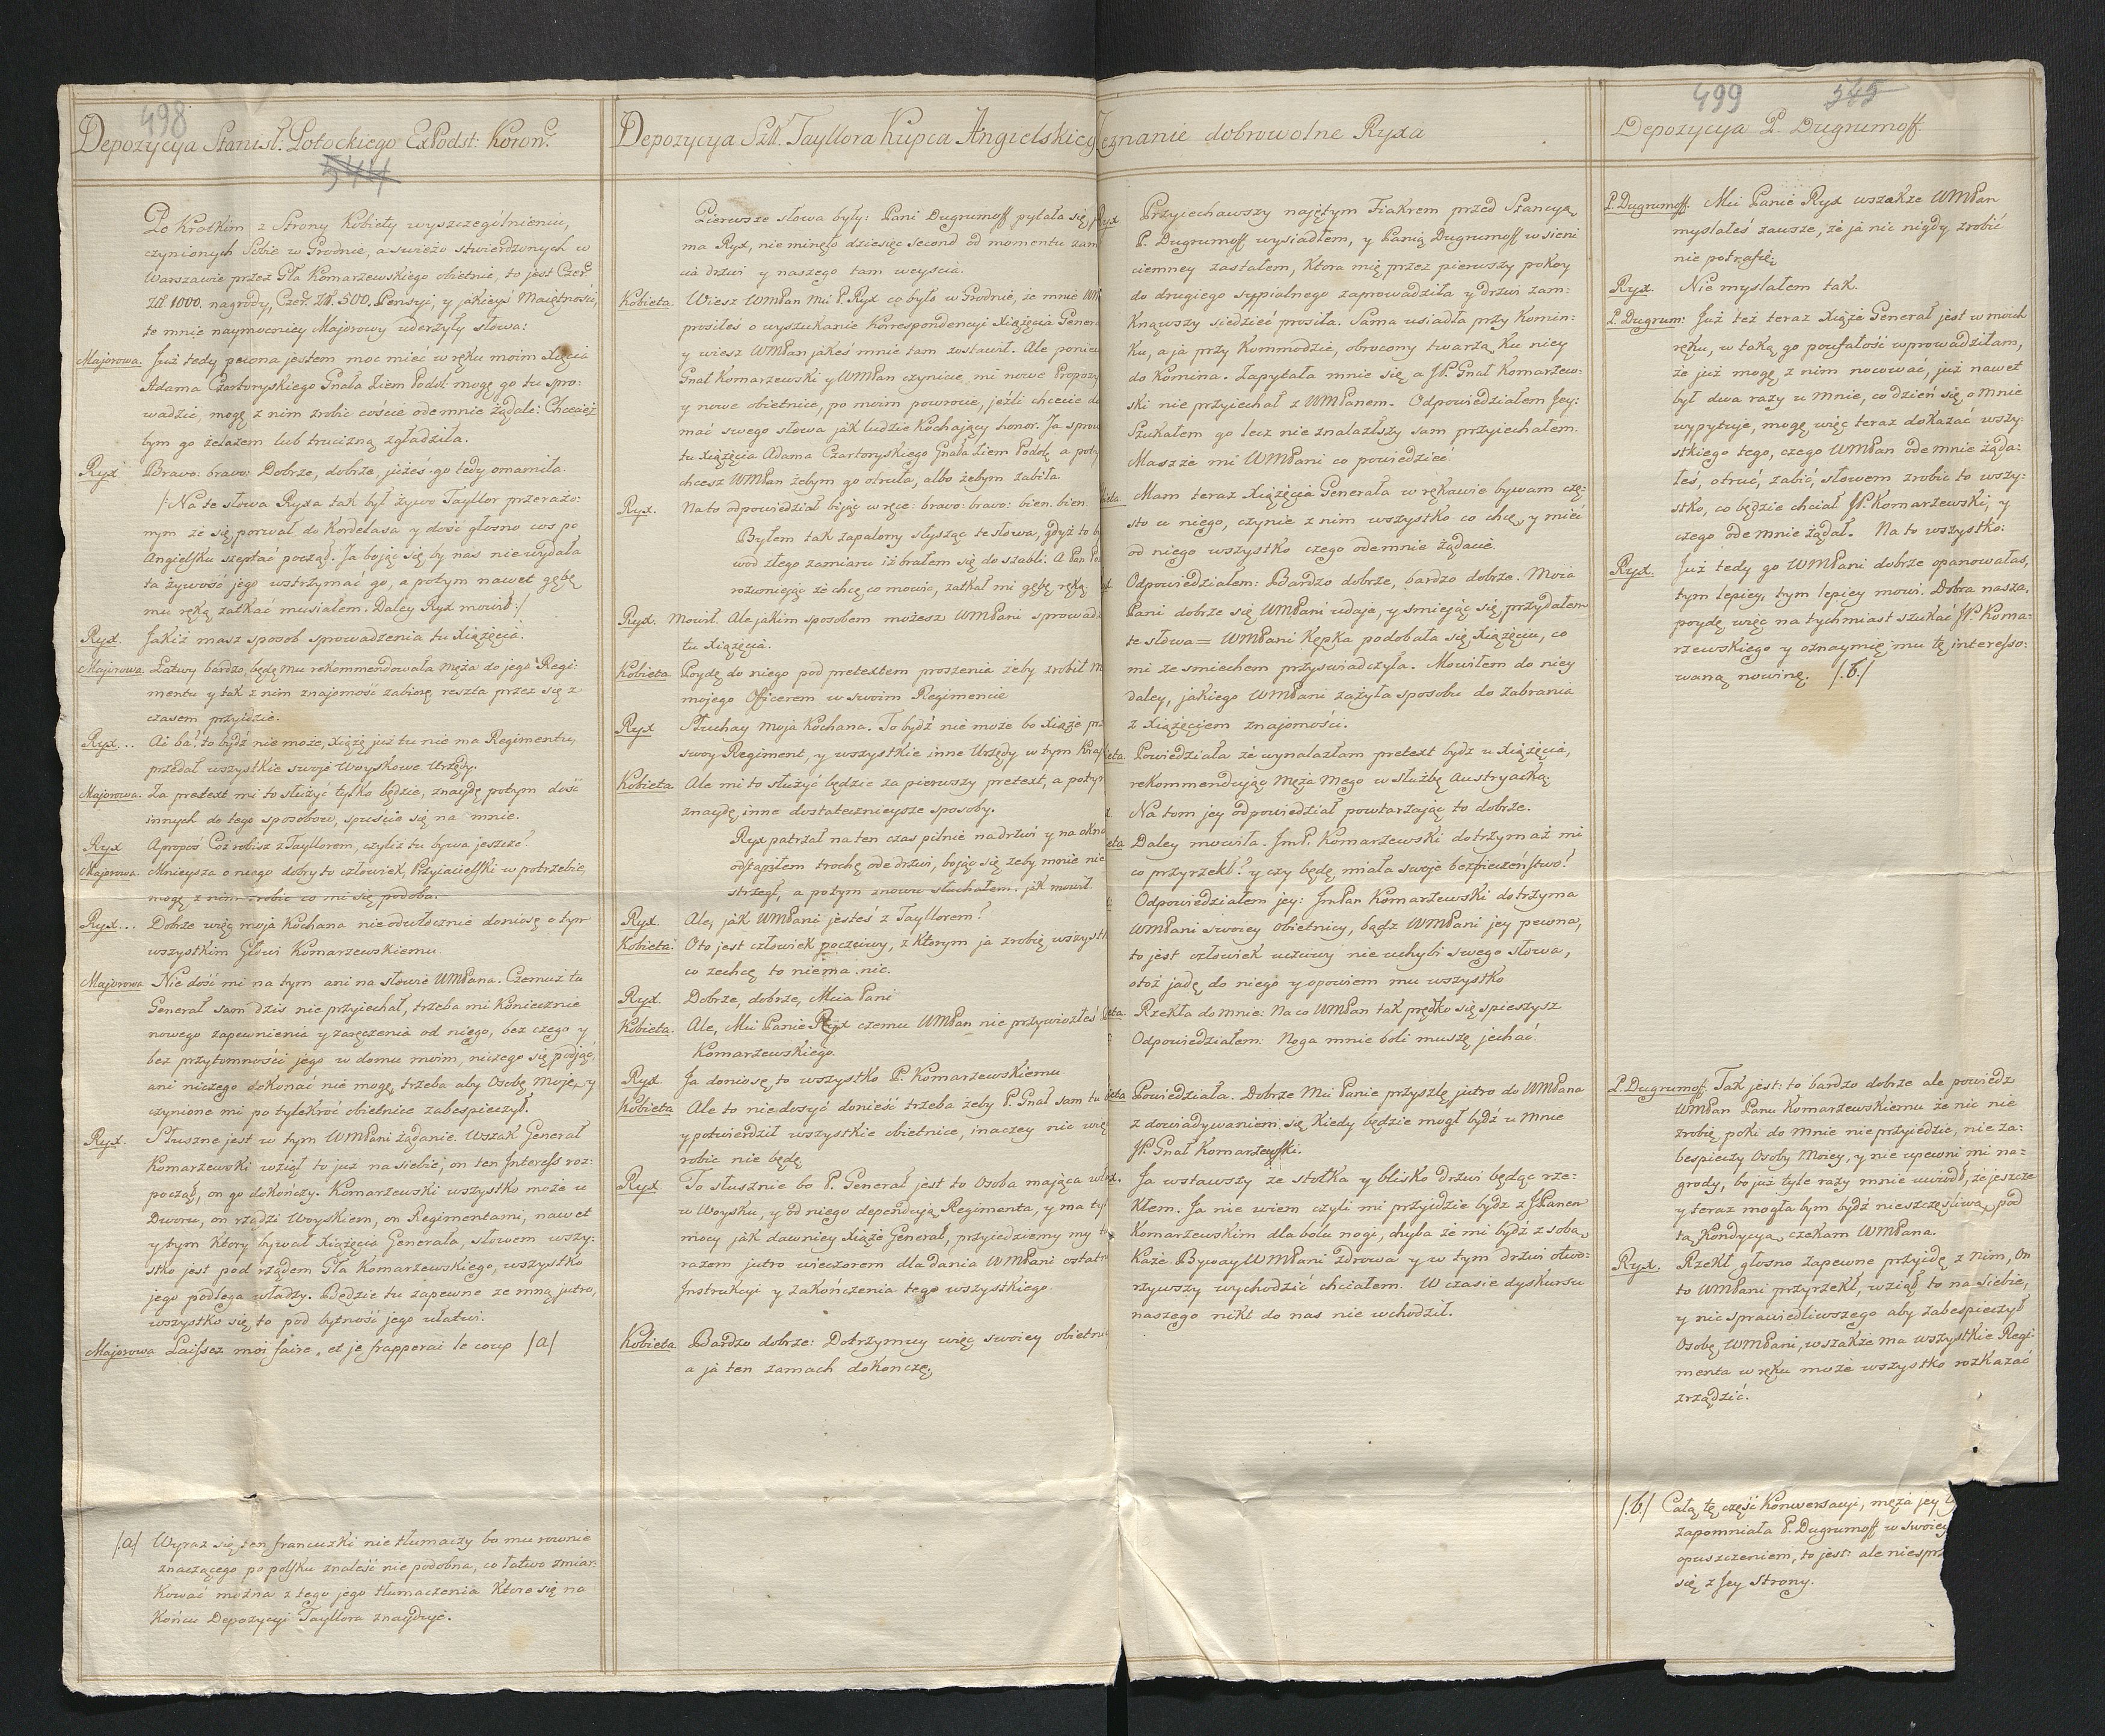 498
Depozycya Stanisł. Potockiego ExPodst: Koron.
544
Po Krotkim z Strony Kobiety wyszczególnieniu,
czynionych Sobie w Grodnie, a swieżo stwierdzonych w
Warszawie przez Gła Komarzewskiego obietnic, to jest Czer.
Zł 1000. nagrody, Czer. Zł. 500. Pensyi, y jakieyś Maiętności,
te mnie naymocniey Majorowy uderzyły słowa:
Majorowa. Już tedy pewna jestem moc mieć w ręku moim Xcia
Adama Czartoryskiego Gnała Ziem Podol: mogę go tu spro-
wadzić, mogę z nim zrobić coście odemnie żądali: Chcecież
bym go żelazem lub trucizną zgładziła.
Ryx Bravo: bravo: Dobrze, dobrze, jużeś go tedy omamiła.
/:Na te słowa Ryxa tak był żywo Tayllor przerażo-
nym że się porwał do Kordelasa y dość głosno cos po
Angielsku szeptać począł. Ja bojąc się by nas nie wydała
ta żywość jego wstrzymać go, a potym nawet gębę
mu ręką zatkać musiałem. Daley Ryx mowił:/
Ryx. Jakiż masz sposob sprowadzenia tu Xiążęcia.
Majorowa. Łatwy bardzo, będę mu rekommendowała męża do jego Regi-
mentu y tak z nim znajomość zabiorę, reszta przez się z
czasem przyidzie.
Ryx... Ai ba! to bydź nie może, Xiążę już tu nie ma Regimentu,
przedał wszystkie swoje Woyskowe Urzędy.
Majorowa. Za pretext mi to służyć tylko będzie, znaydę potym dość
innych do tego sposobow, spuście się na mnie.
Ryx Apropos Coż robisz z Tayllorem, czyliż tu bywa jeszcze?
Majorowa. Mnieysza o niego dobry to człowiek, Przyiacielski w potrzebie,
mogę z nim zrobić co mi się podoba.
Ryx... Dobrze więc moja Kochana nieodwłocznie doniosę o tym
wszystkim Głowi Komarzewskiemu.
Majorowa Nie dość mi na tym ani na słowie WMPana. Czemuż tu
Generał sam dzis nie przyiechał, trzeba mi Koniecznie
nowego zapewnienia y zaręczenia od niego, bez czego y
bez przytomności jego w domu moim, niczego się podjąć,
ani niczego dokonać nie mogę, trzeba aby Osobę Moję, y
czynione mi po tylekroć obietnice zabespieczył.
Ryx. Słuszne jest w tym WMPani żądanie. Wszak Generał
Komarzewski wziął to już na siebie, on ten Interess roz-
począł, on go dokończy. Komarzewski wszystko może u
Dworu, on rządzi Woyskiem, on Regimentami, nawet
y tym Ktory bywał Xiążęcia Generała, słowem wszy-
stko jest pod rządem Gła Komarzewskiego, wszystko
jego podlega władzy. Będzie tu zapewne ze mną jutro,
wszystko się to pod bytność jego ułatwi.
Majorowa Laissez moi faire, et je frapperai le coup /a/
/:a/ Wyraz się ten francuzki nie tłumaczy bo mu rownie
znaczącego po polsku znaleść nie podobna, co łatwo zmiar-
Kować można z tego jego tłumaczenia Ktore się na
Końcu Depozycyi Tayllora znayduje.
Depozycya Szl. Tayllora Kupca Angielskieg
Pierwsze słowa były: Pani Dugrumoff pytała się
ma Ryx, nie mineło dziesięc second od momentu zam
cia drzwi y naszego tam weyscia.
Kobieta. Wiesz WMPan Mci P. Ryx co było w Grodnie, że mnie
prosiłeś o wyszukanie Korrespondencyi Xiążęcia Gener
y wiesz WMPan jakeś mnie tam zostawił. Ale poniew
Gnał Komarzewski y WMPan czynicie mi nowe Propozy
y nowe obietnice, po moim powrocie, jeźli chcecie do
mać swego słowa jak ludzie Kochający honor. Ja sprow
tu Xiążęcia Adama Czartoryskiego Gnała Ziem Podol: a poty
chcesz WMPan żebym go otruła, albo żebym zabiła.
Ryx. Na to odpowiedział bijąc w ręce: bravo: bravo: bien. bien.
Byłem tak zapalony słysząc te słowa, gdyż to b
wod złego zamiaru iż brałem się do szabli: A Pan Po
rozumiejąc że chcę co mowić, zatkał mi gębę ręką
Ryx. Mowił. Ale jakim sposobem możesz WMPani sprowad
tu Xiążęcia.
Kobieta Poydę do niego pod pretextem proszenia żeby zrobił M
mojego Officerem w swoim Regimencie
Ryx Słuchay moja Kochana. To bydź nie może bo Xiąże prz
swoy Regiment, y wszystkie inne Urzędy w tym Kraj
Kobieta Ale mi to służyć będzie za pierwszy pretext, a potym
znaydę inne dostatecznieysze sposoby.
Ryx patrzał na ten czas pilnie na drzwi y na okno
odstąpiłem trochę ode drzwi, bojąc się żeby mnie nie
strzegł, a potym znowu słuchałem. jak mowił.
Ryx. Ale, jak WMPani jesteś z Tayllorem?
Kobieta: Oto jest człowiek poczciwy, z Ktorym ja zrobię wszyst
co zechcę to niema nic.
Ryx. Dobrze, dobrze, Mcia Pani
Kobieta. Ale, Mci Panie Ryx czemu WMPan nie przywiozłeś
Komarzewskiego.
Ryx Ja doniosę to wszystko P. Komarzewskiemu.
Kobieta Ale to niedosyć donieść trzeba żeby P. Gnał sam tu
y potwierdził wszystkie obietnice, inaczey nic wię
robic nie będę.
Ryx To słusznie bo P. Generał jest to Osoba mająca wła
w Woysku, y od niego dependują Regimenta, y ma ty
mocy jak dawniey Xiąże Generał, przyiedziemy my
razem jutro wieczorem dla dania WMPani ostatn
Instrukcyi y zakończenia tego wszystkiego.
Kobieta Bardzo dobrze: Dotrzymcy więc swoiey obietni
a ja ten zamach dokończę.
Zeznanie dobrowolne Ryxa
Ryx Przyiechawszy najętym Fiakrem przed Stancyą
P. Dugrumoff wysiadłem, y Panią Dugrumoff w sieni
ciemney zastałem, Ktora mię przez pierwszy pokoy
do drugiego sypialnego zaprowadziła y drzwi zam-
Knąwszy siedzieć prosiła. Sama usiadła przy Komin-
Ku, a ja przy Kommodzie, obrocony twarzą Ku niey
do Komina. Zapytała mnie się a JP. Gnał Komarzew-
ski nie przyiechał z WMPanem. Odpowiedziałem Jey:
Szukałem go lecz nie znalazłszy sam przyiechałem.
Maszże mi WMPani co powiedzieć
ieta Mam teraz Xiążęcia Generała w rękawie bywam czę-
sto u niego, czynie z nim wszystko co chcę, y mieć
od niego wszystko czego odemnie żądacie.
Odpowiedziałem: Bardzo dobrze, bardzo dobrze. Moia
Pani dobrze się WMPani udaje, y smiejąc się przydałem
te słowa = WMPani Kępka podobała się Xiążęciu, co
mi ze smiechem przyswiadczyła. Mowiłem do niey
daley, jakiego WMPani zażyła sposobu do zabrania
z Xiążęciem znajomości.
ieta. Powiedziała że wynalazłam pretext bydz u Xiążęcia,
rekommendując Męża Mego w służbę Austryacką.
Na tom jey odpowiedział powtarzając to dobrze.
ieta Daley mowiła. JmP. Komarzewski dotrzymaż mi
co przyrzekł? y czy będę miała swoje bezpieczeństwo?
Odpowiedziałem jey: JmPan Komarzewski dotrzyma
WMPani swoiey obietnicy, bądz WMPani jey pewna,
to jest człowiek uczciwy nie uchybi swego słowa,
otoż jadę do niego y opowiem mu wszystko
ieta. Rzekła do mnie: Na co WMPan tak prędko się spieszysz
Odpowiedziałem: Noga mnie boli muszę jechać.
ieta Powiedziała. Dobrze Mci Panie przyszlę jutro do WMPana
z dowiadywaniem się, Kiedy będzie mogł bydź u mnie
JP. Gnał Komarzewski.
x. Ja wstawszy ze stołka y blisko drzwi będąc rze-
Kłem. Ja nie wiem czyli mi przyidzie bydz z JPanem
Komarzewskim dla bolu nogi, chyba że mi bydź z sobą
Każe Byway WMPani zdrowa y w tym drzwi otwo-
rzywszy wychodzić chciałem. W czasie dyskursu
naszego nikt do nas nie wchodził.
499 545
Depozycya P. Dugrumoff
P. Dugrumoff. Mci Panie Ryx wszakże WMPan
myslałeś zawsze, że ja nic nigdy zrobić
nie potrafię.
Ryx. Nie myslałem tak.
P. Dugrum: Już też teraz Xiąże Generał jest w moich
ręku, w taką go poufałość wprowadziłam,
że już mogę z nim nocować, już nawet
był dwa razy u mnie, co dzień się o mnie
wypytuje, mogę więc teraz dokazać wszy-
stkiego tego, czego WMPan odemnie żąda-
łeś, otruć, zabić, słowem zrobić to wszy-
stko, co będzie chciał JP. Komarzewski, y
czego odemnie żądał. Na to wszystko:
Ryx. Już tedy go WMPani dobrze opanowałaś,
tym lepiey, tym lepiey mowi. Dobra nasza,
poydę więc na tychmiast szukać JP. Koma-
rzewskiego y oznaymię mu tę interesso-
waną nowinę. /:b:/
P. Dugrumoff Tak jest: to bardzo dobrze ale powiedz
WMPan Panu Komarzewskiemu że nic nie
zrobię, poki do mnie nie przyiedzie, nie za-
bespieczy Osoby Moiey, y nie upewni mi na-
grody, bo już tyle razy mnie uwiodł, że jeszcze
y teraz mogła bym bydź nieszczęśliwą, pod
tą Kondycyą czekam WMPana.
Ryx. Rzekł głosno zapewne przyidę z nim, On
to WMPani przyrzekł, wziął to na siebie,
y nic sprawiedliwszego aby zabespieczył
Osobę WMPani, wszakże ma wszystkie Regi-
menta w ręku może wszystko rozkazać
zrządzić.
/:b:/ Całą tę część Konwersacyi, męża jey
zapomniała P. Dugrumoff w swoiey
opuszczeniem, to jest: ale niespr
się z Jey Strony.